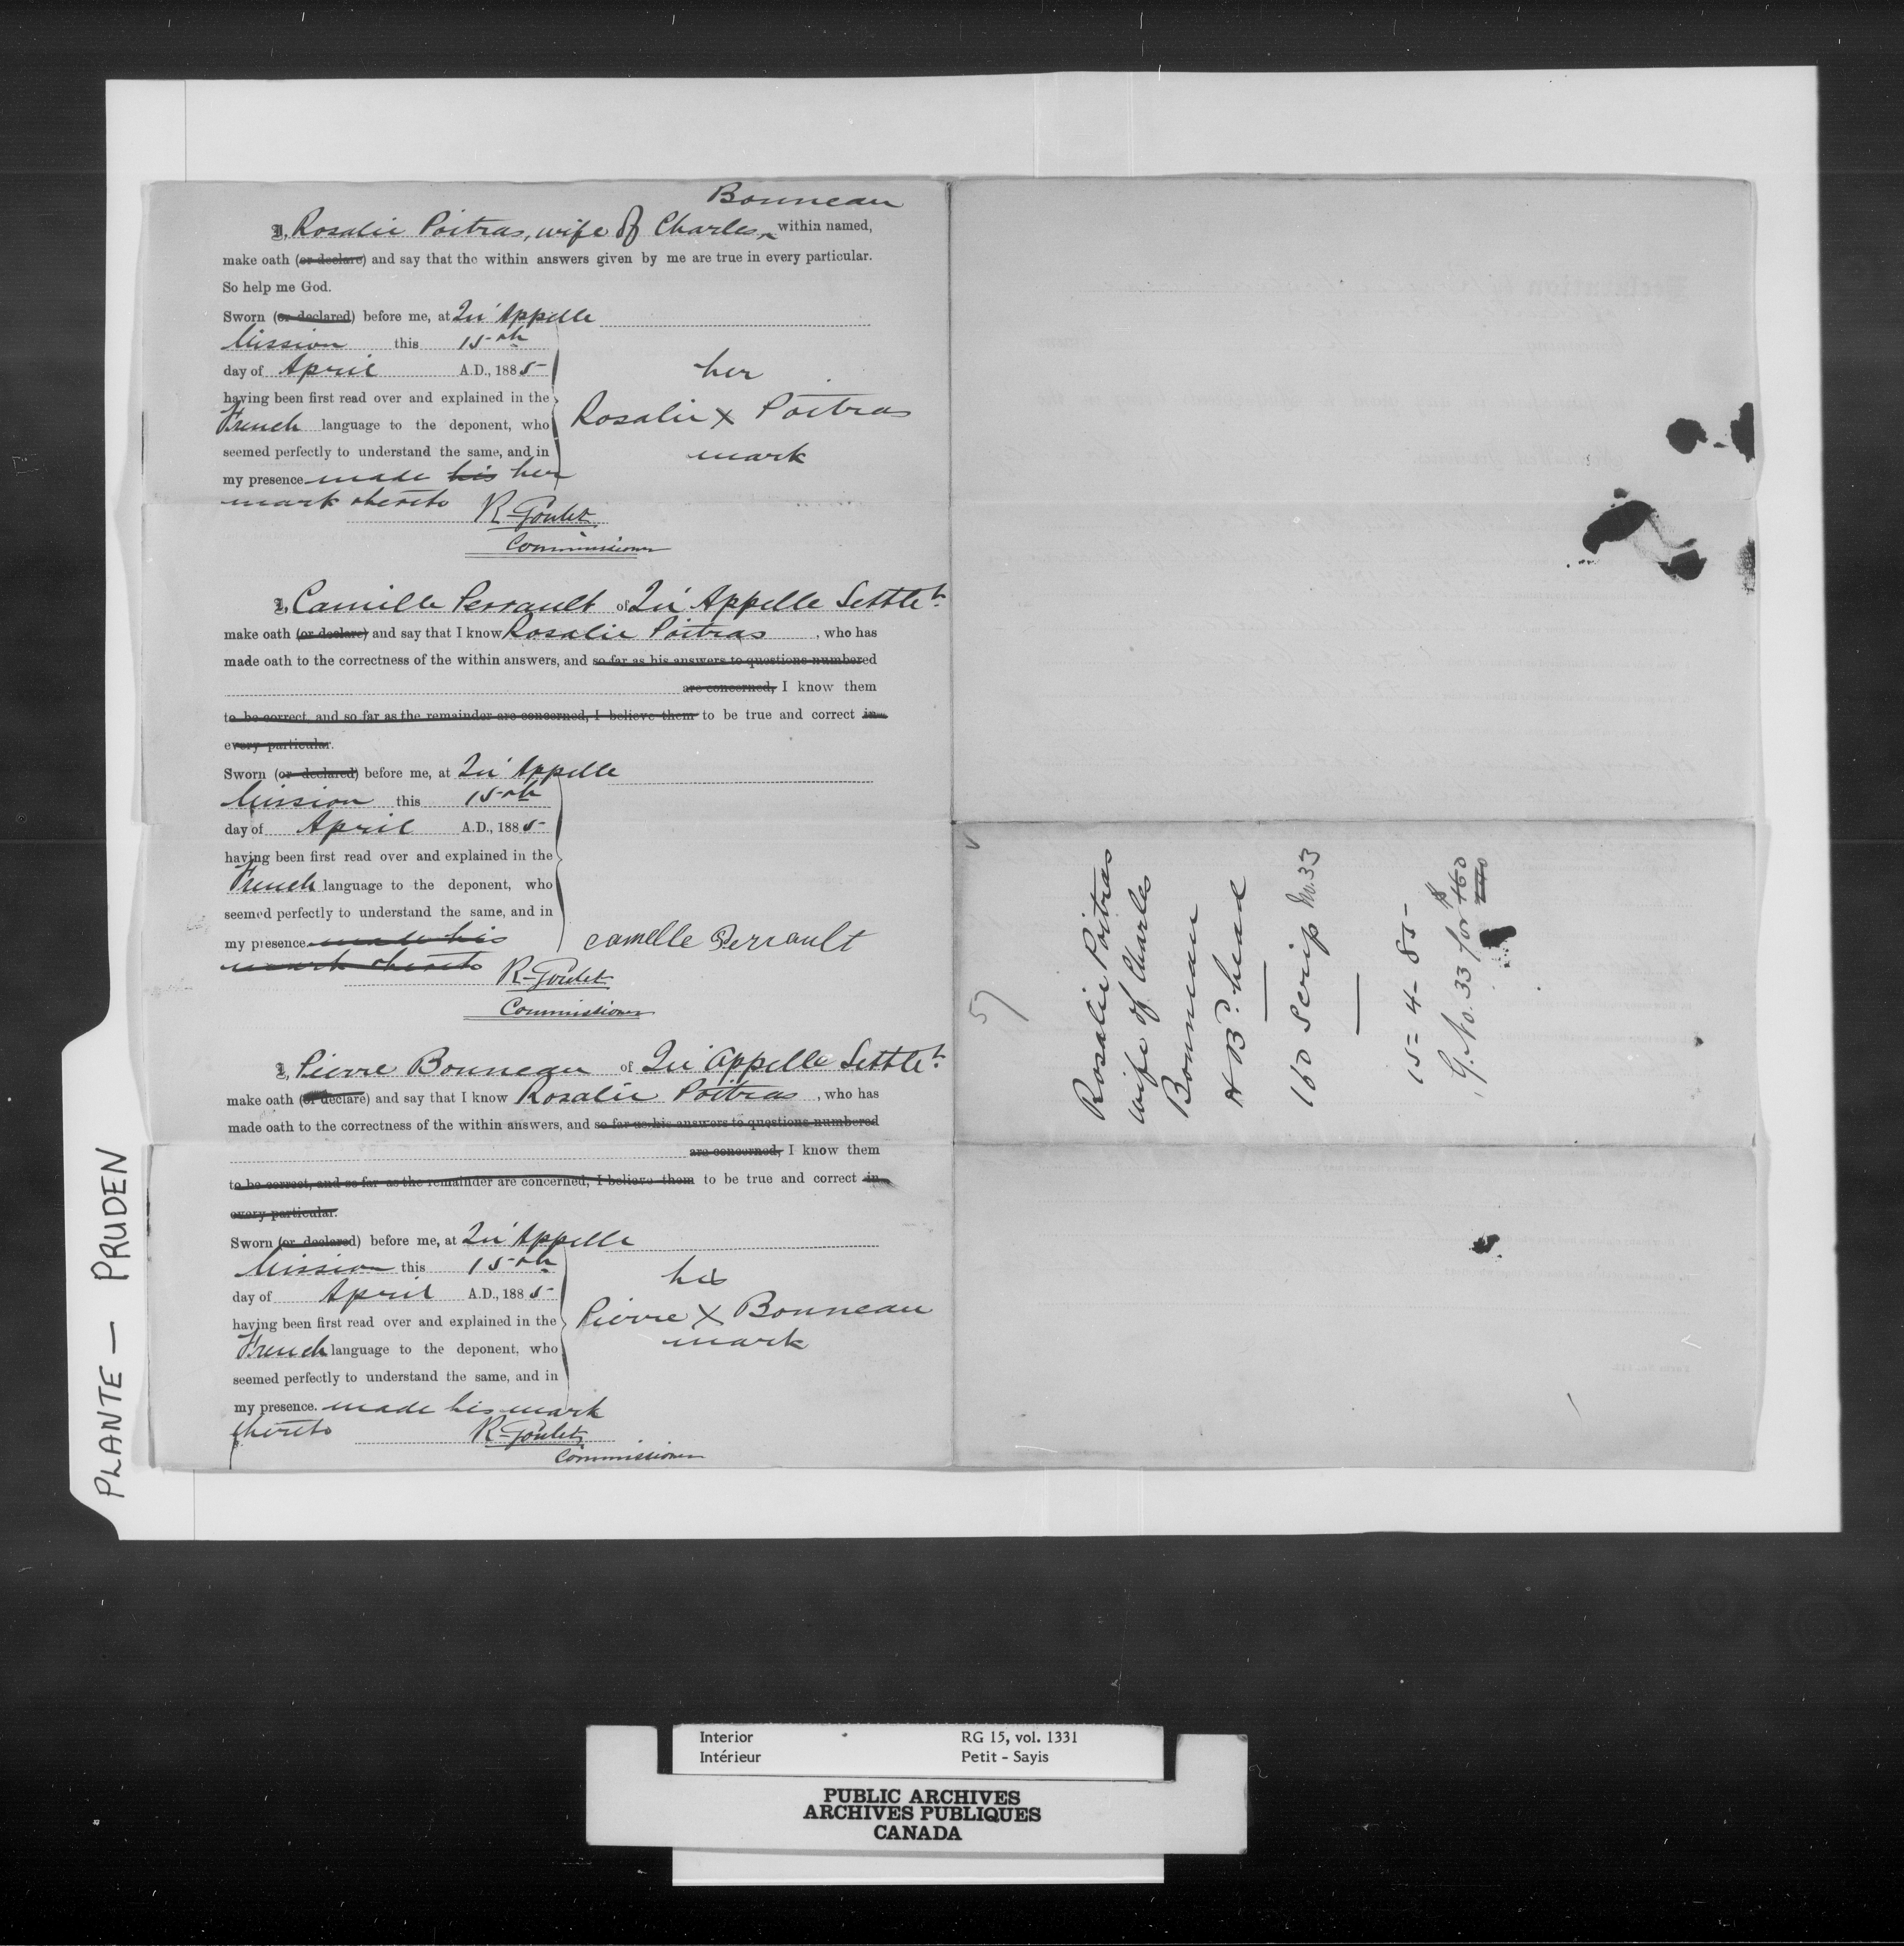 Bonneau
I, Rosalie Poitras, wife of Charles ^ within named,
make oath (or declare) and say that the within answers given by me are true in every particular.
So help me God.
Sworn (or declared) before me, at Qu'Appelle
Mission this 15th
day of April A.D., 1885
having been first read over and explained in the
French language to the deponent, who
seemed perfectly to understand the same, and in
my presence made his her
mark thereto
her
Rosalie X Poitras
mark
R. Goulet
Commissioner
I, Camille Perrault of Qu'Appelle Settlet.
make oath (or declare) and say that I know Rosalie Poitras, who has
made oath to the correctness of the within answers, and so far as his answers to questions numbered
are concerned, I know them
to be correct, and so far as the remainder are concerned, I believe them to be true and correct in
every particular.
Sworn (or declared) before me, at Qu'Appelle
Mission this 15th
day of April A.D., 1885
having been first read over and explained in the
French language to the deponent, who
seemed perfectly to understand the same, and in
my presence made his
mark thereto
camelle Perrault
R. Goulet
Commissioner
I, Pierre Bonneau of Qu'Appelle Settlet.
make oath (or declare) and say that I know Rosalie Poitras, who has
made oath to the correctness of the within answers, and so far as his answers to questions numbered
are concerned, I know them
to be correct, and so far as the remainder are concerned, I believe them to be true and correct in
every particular.
Sworn (or declared) before me, at Qu'Appelle
Mission this 15th
day of April A.D., 1885
having been first read over and explained in the
French language to the deponent, who
seemed perfectly to understand the same, and in
my presence. made his mark
thereto
his
Pierre X Bonneau
mark
R. Goulet
Commissioner
57
Rosalie Poitras
wife of Charles
Bonneau
H Bd. head
160 Scrip No. 33
15-4-85
G. No. 33 for $160
PLANTE — PRUDEN
Interior RG 15, vol. 1331
Intérieur Petit - Sayis
PUBLIC ARCHIVES
ARCHIVES PUBLIQUES
CANADA